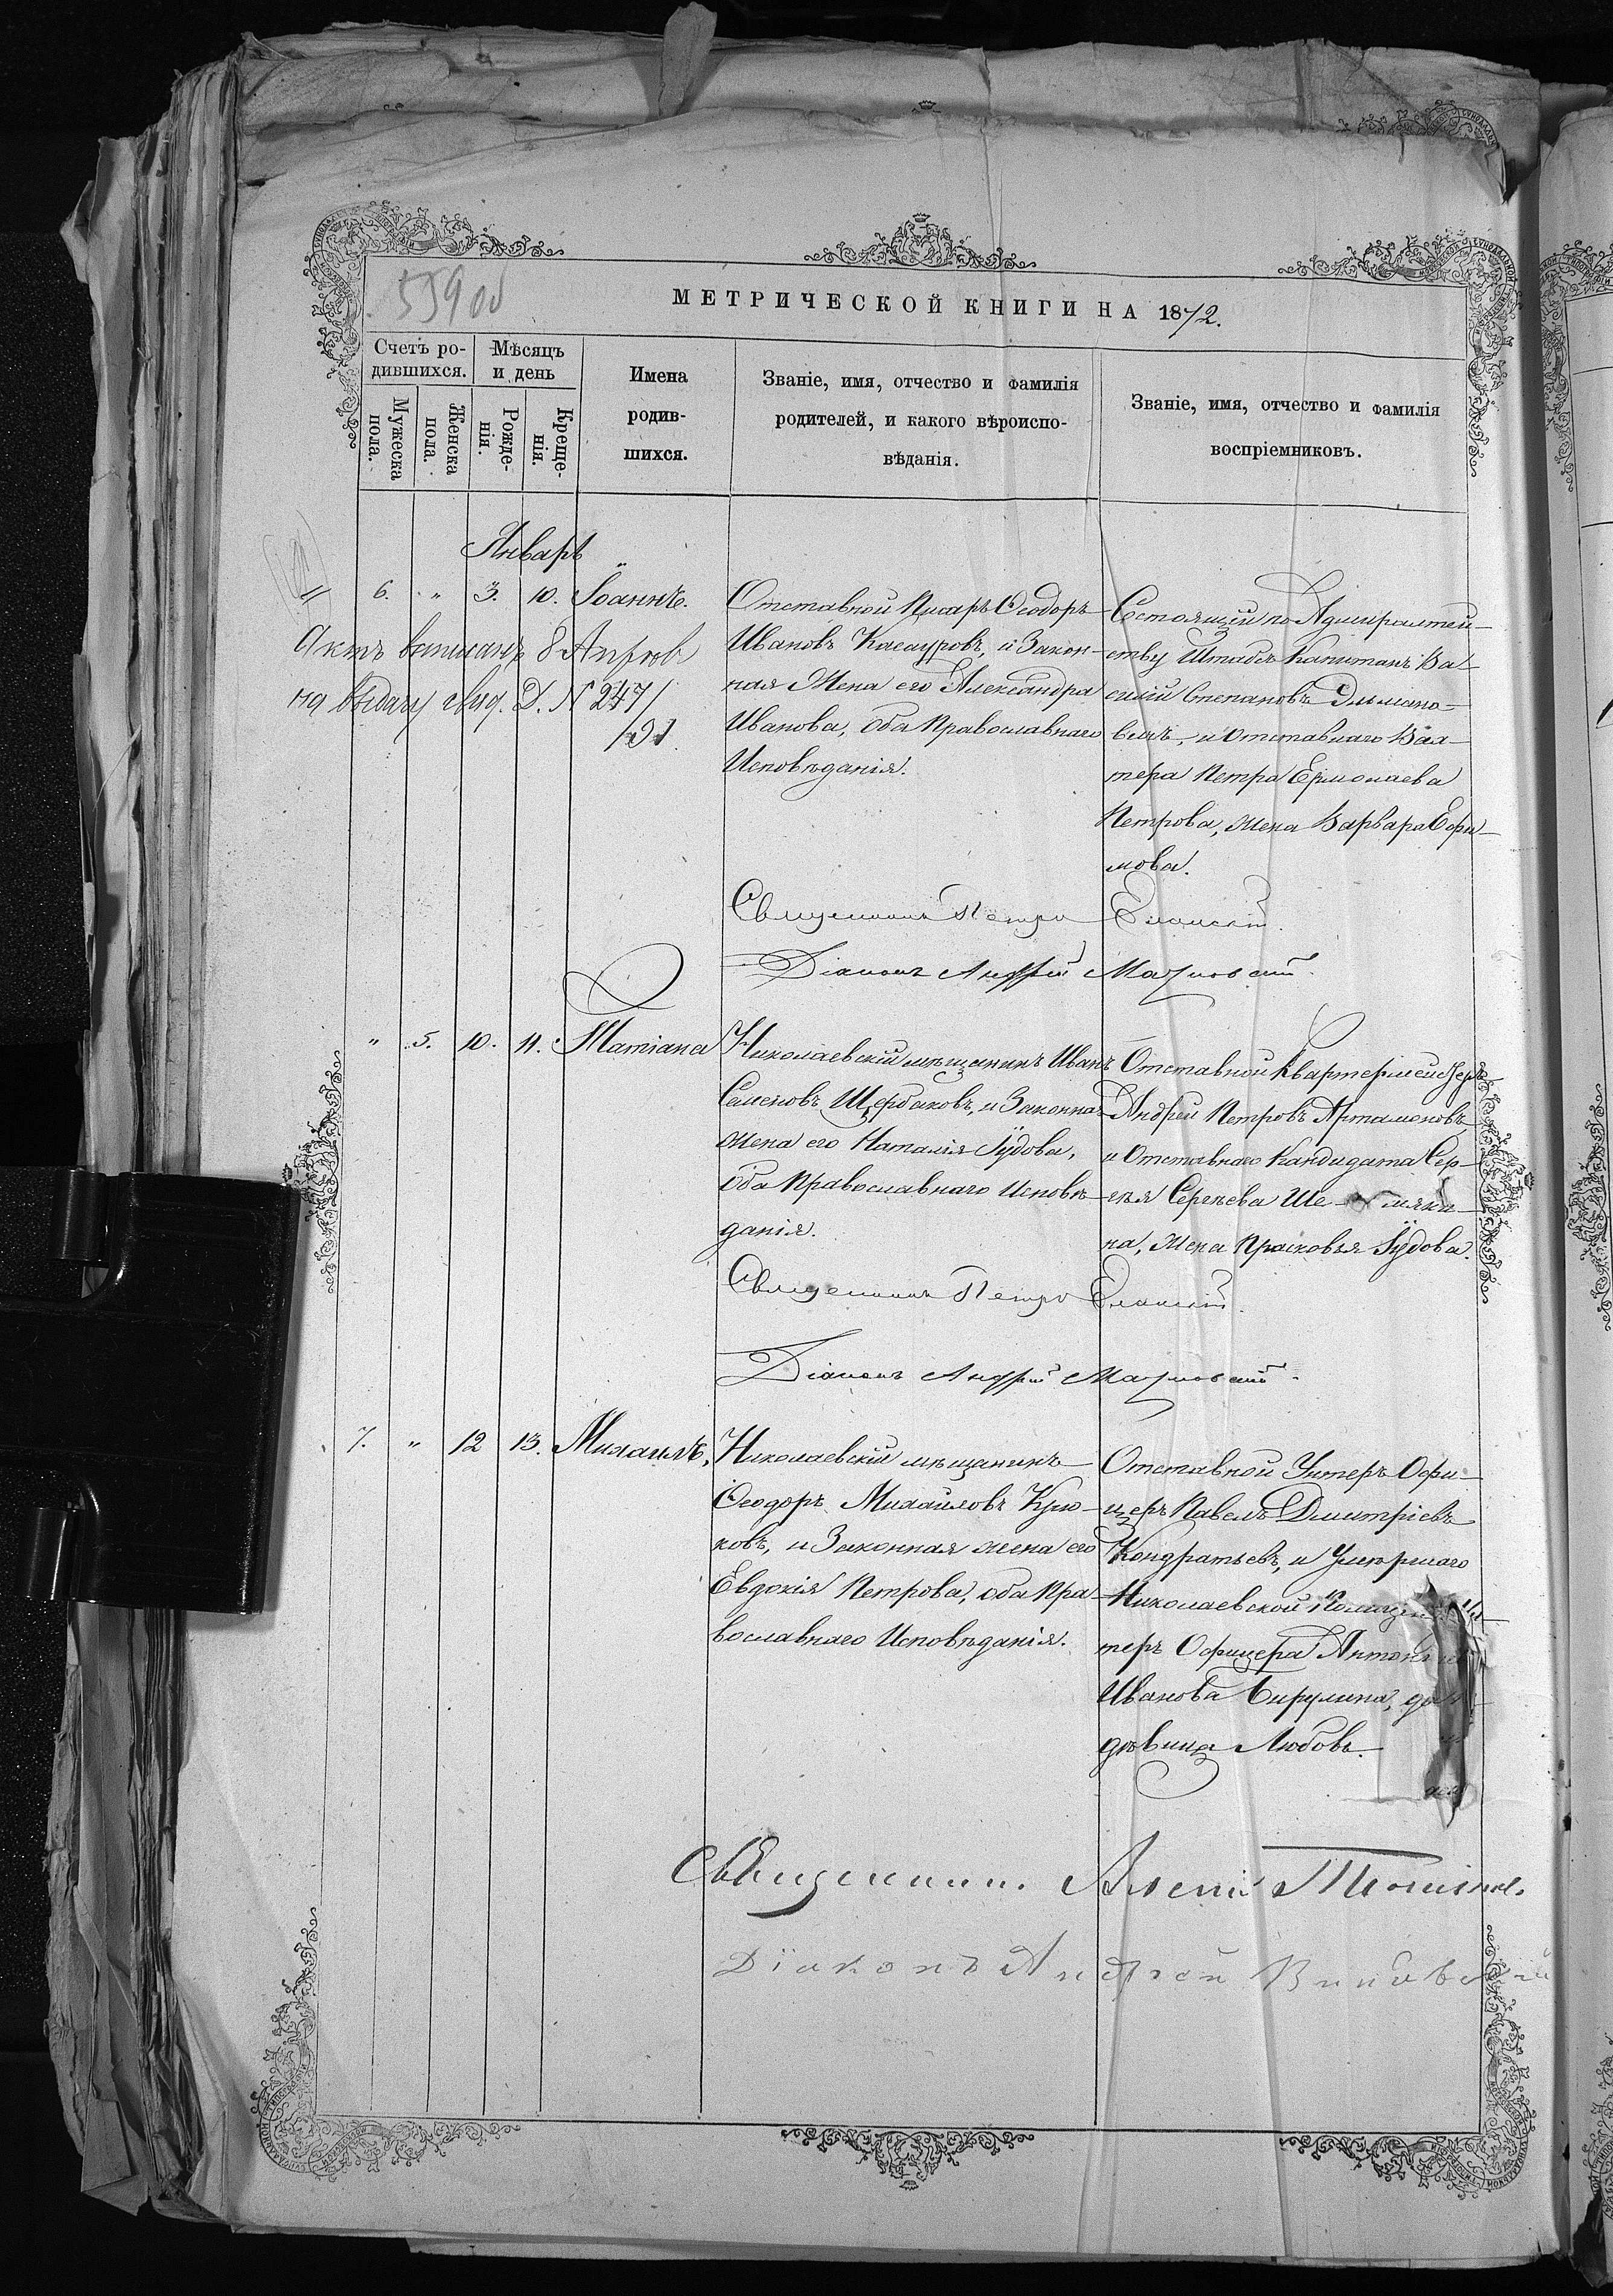 559 об
МЕТРИЧЕСКОЙ КНИГИ НА 1872.
Счетъ ро-
дившихся.
Мѣсяцъ
и день
Мужеска
пола.
Женска
пола.
Рожде-
нія.
Креще-
нія.
Имена
родив-
шихся.
Званіе, имя, отчество и фамилія
родителей, и какого вѣроиспо-
вѣданія.
Званіе, имя, отчество и фамилія
воспріемниковъ.
Январь
6. " 3. 10. Іоаннъ.
Отставной Писарь Ѳеодоръ
Ивановъ и Закон-
ная Жена его Александра
Иванова, оба Православнаго
Исповѣданія.
Состоящій по Адмиралтей-
ству Штабсъ Капитанъ Ва-
силій Степановъ
и Отставнаго Вах-
тера Петра Ермолаева
Петрова, жена Варвара Ефи-
мова.
Актъ 8 Апр
на выдачу Д. N 247/
91.
Священникъ Петръ
Діаконъ Андрей
" 5. 10. 11. Татіана
Николаевскій мѣщанинъ Иванъ
Семеновъ Щербаковъ, и Законная
жена его Наталія Іудова,
оба Православнаго Исповѣ-
данія.
Отставной Квартермейстеръ
Андрей Петровъ Артамоновъ,
и Отставнаго Кандидата Сер-
гѣя Сергѣева Ше- мяки-
на, жена Прасковья Іудова.
Священникъ Петръ
Діаконъ Андрей
7. " 12 13. Михаилъ,
Николаевскій мѣщанинъ
Ѳеодоръ Михайловъ Крю-
ковъ, и Законная жена его
Евдокія Петрова, оба Пра-
вославнаго Исповѣданія.
Отставной Унтеръ Офи-
церъ Павелъ Дмитріевъ
Кондратьевъ, и Умершаго
Николаевской
теръ Офицера
Иванова Бирулина,
дѣвица Любовь.
Священникъ Алексій
Діаконъ Андрей